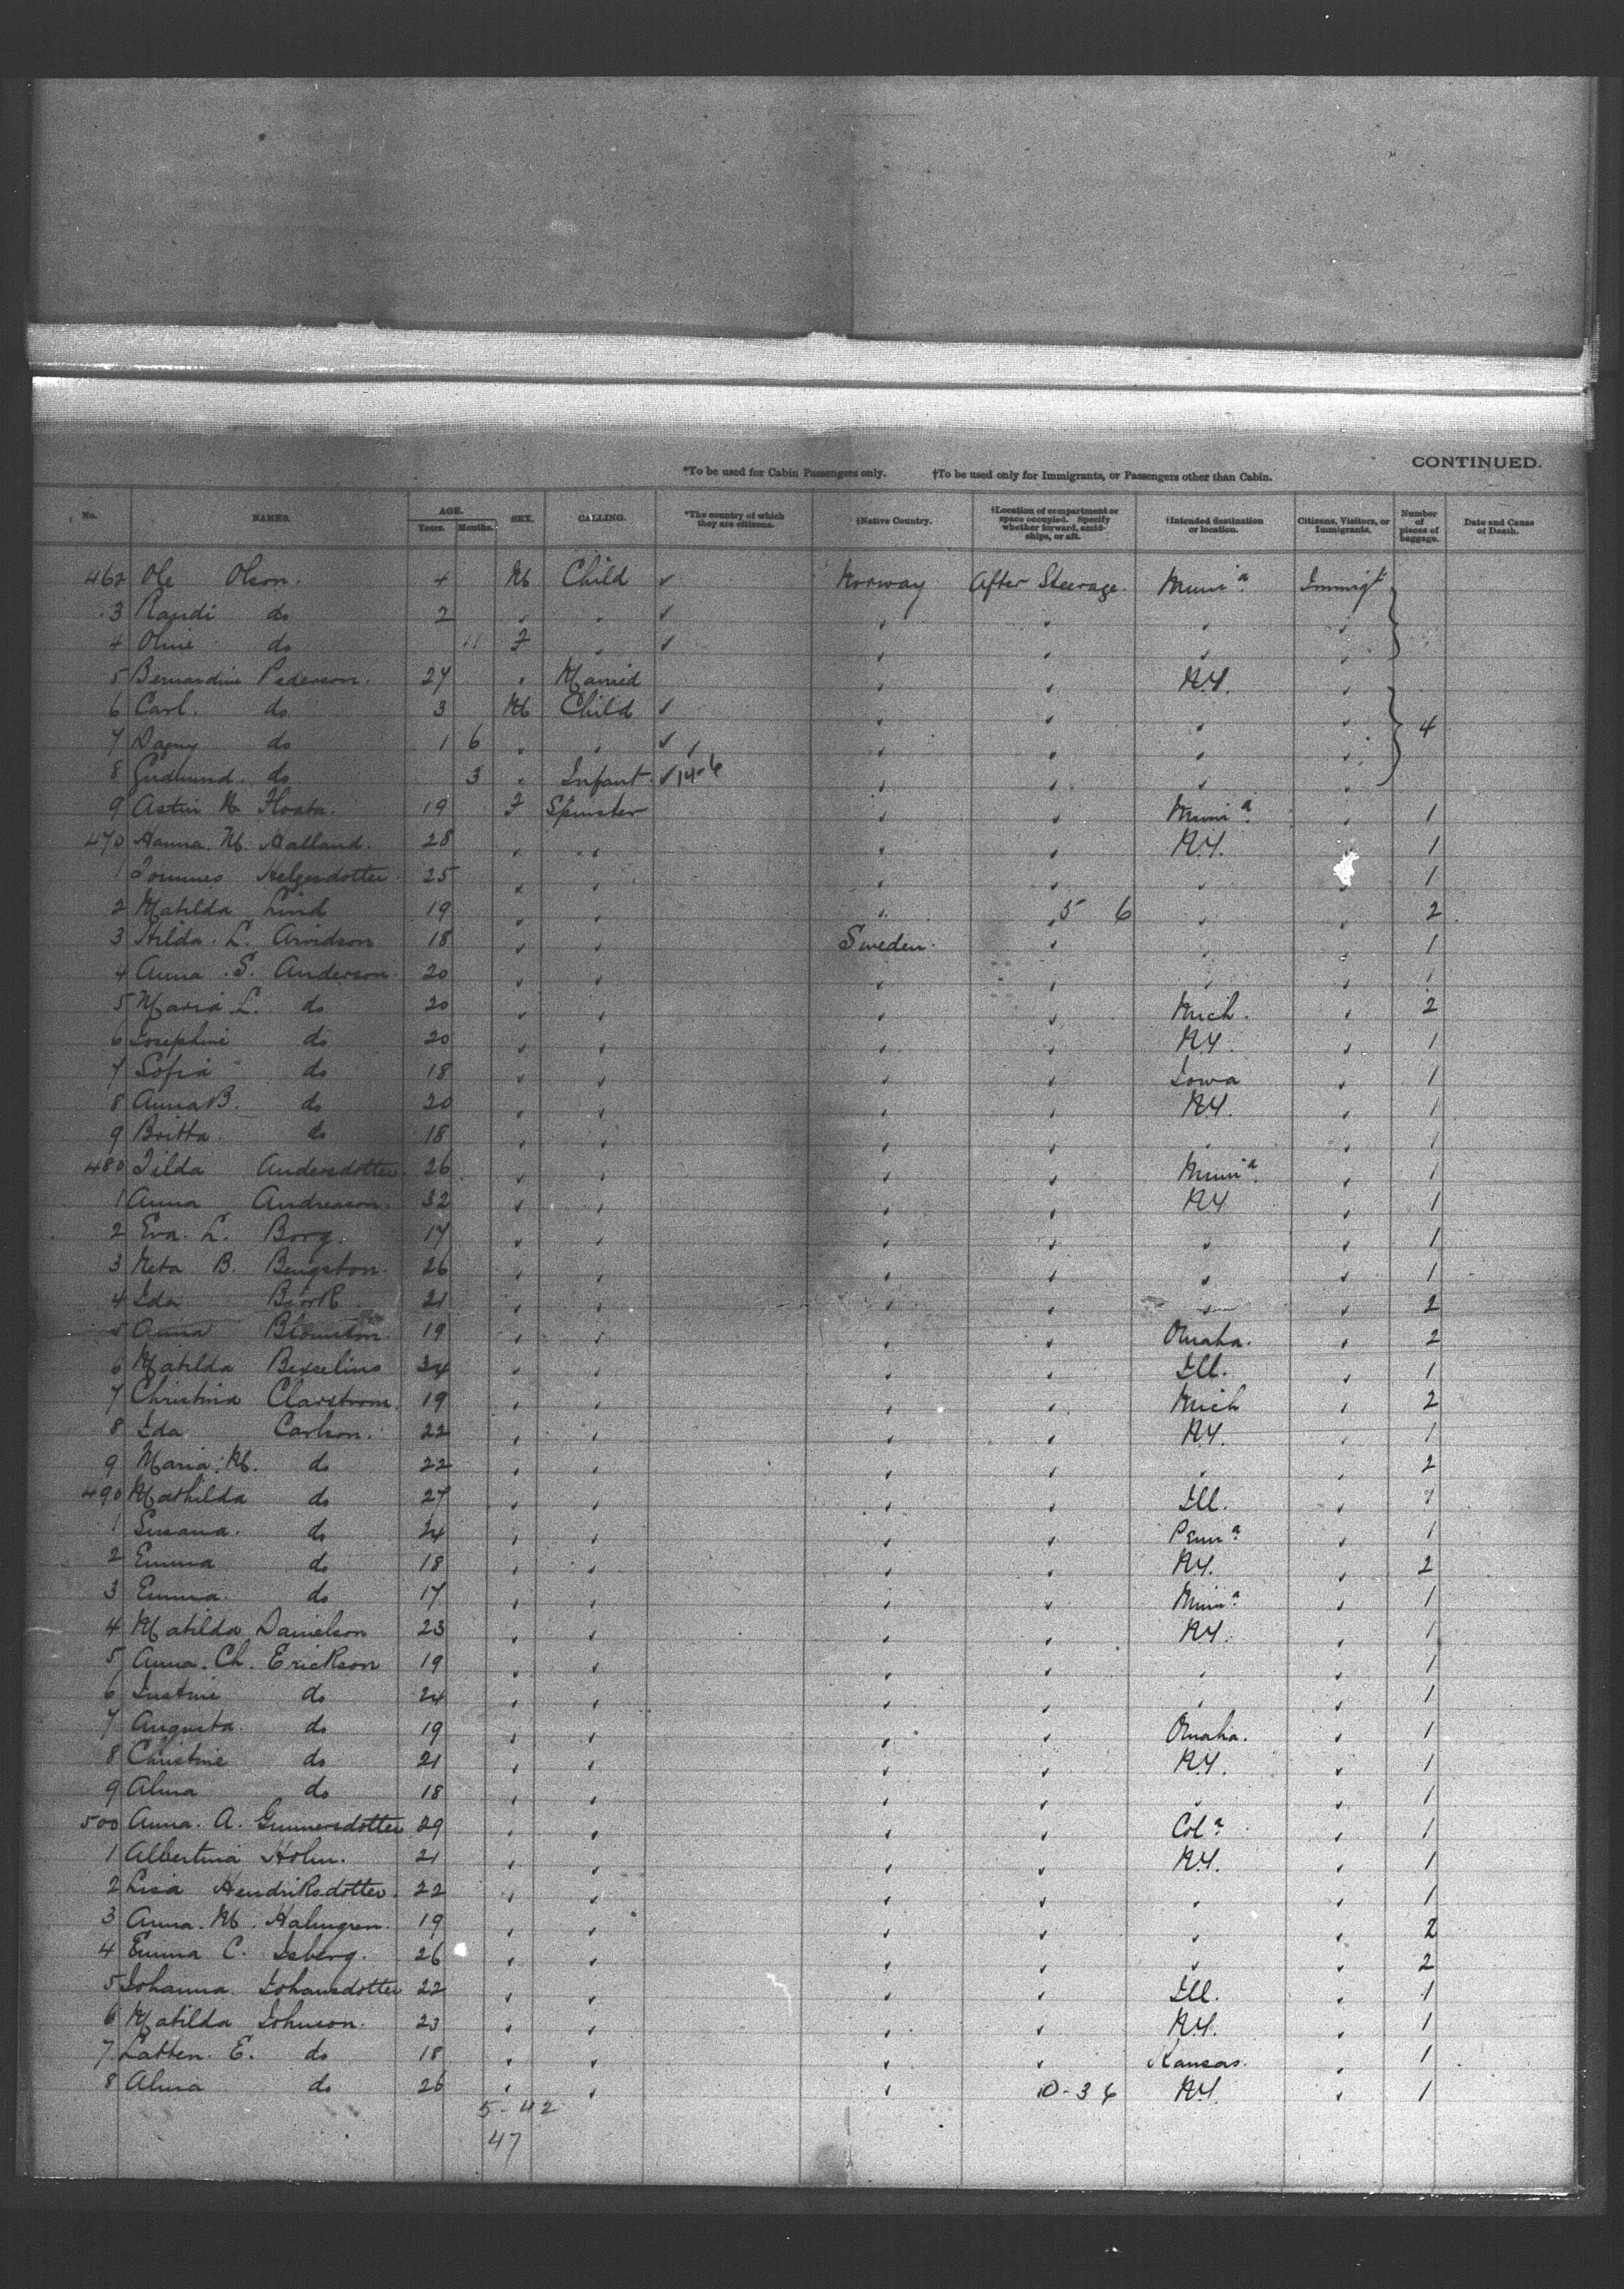 CONTINUED.
*To be used for Cabin Passengers only. †To be used only for Immigrants, or Passengers other than Cabin.
No. NAMES. AGE. Years. Months. SEX. CALLING. *The country of which they are citizens. †Native Country. †Location of compartment or space occupied. Specify whether forward, amidships, or aft. †Intended destination or location. Citizens, Visitors, or Immigrants. Number of pieces of baggage. Date and Cause of Death.
462 Ole Olson. 4 M Child ✓ Norway After Steerage. Minnᵃ Immigᵗ
3 Randi do 2 " " ✓ " " " "
4 Oline do 11 F " ✓ " " " "
5 Bernardine Pederson. 27 " Married " " N.Y. "
6 Carl. do 3 M Child ✓ " " " " 4
7 Dagny do 1 6 " " ✓ " " " "
8 Gudmund. do 3 " Infant. ✓ 14-6 " " " "
9 19 F Spinster " " Minnᵃ " 1
470 Hanna. M. Halland. 28 " " " " N.Y. " 1
1 Helgesdotter. 25 " " " " " " 1
2 Matilda Lind 19 " " " " 5 6 " " 2
3 Hilda. L. Arvidson 18 " " Sweden. " " " 1
4 Anna. S. Anderson. 20 " " " " " " 1
5 Maria L. do 20 " " " " Mich. " 2
6 Josephine do 20 " " " " N.Y. " 1
7 Sofia do 18 " " " " Iowa " 1
8 Anna B. do 20 " " " " N.Y. " 1
9 Britta. do 18 " " " " " " 1
480 Tilda Andersdotter. 26 " " " " Minnᵃ " 1
1 Anna Andreason. 32 " " " " N.Y " 1
2 Eva. L. Borg. 17 " " " " " " 1
3 Meta B. Bengston. 26 " " " " " " 1
4 Ida Bjork 21 " " " " " " 2
5 Anna 19 " " " " Omaha. " 2
6 Matilda 24 " " " " Ill. " 1
7 Christina Clarstrom. 19 " " " " Mich " 2
8 Ida Carlson. 22 " " " " N.Y. " 1
9 Maria. M. do 22 " " " " " " 2
490 Mathilda do 27 " " " " Ill. " 1
1 Susana. do 24 " " " " Pennᵃ " 1
2 Emma do 18 " " " " N.Y. " 2
3 Emma. do 17 " " " " Minnᵃ " 1
4 Matilda Danielson 23 " " " " N.Y. " 1
5 Anna. Ch. Erickson 19 " " " " " " 1
6 Justine do 24 " " " " " " 1
7 Augusta. do 19 " " " " Omaha. " 1
8 Christine do 21 " " " " N.Y. " 1
9 Alma do 18 " " " " " " 1
500 Anna. A. Gunnersdotter 29 " " " " Colᵃ " 1
1 Albertina Holm. 21 " " " " N.Y. " 1
2 Lisa Hendriksdotter. 22 " " " " " " 1
3 Anna. M. Halmgren. 19 " " " " " " 2
4 Emma C. Isberg. 26 " " " " " " 2
5 Johanna. Johansdotter 22 " " " " Ill. " 1
6 Matilda Johnson. 23 " " " " N.Y. " 1
7 E. do 18 " " " " Kansas. " 1
8 Alma do 26 " " " 10-36 N.Y. " 1
5-42
47